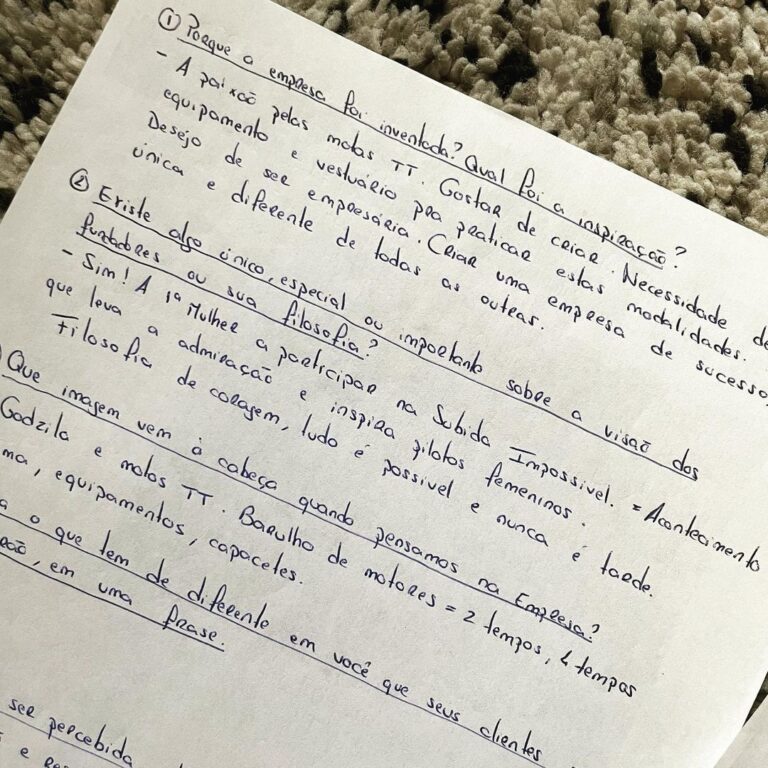 ① Porque a empresa foi inventada? Qual foi a inspiração?
- A paixão pelas motas TT. Gostar de criar. Necessidade de
equipamento e vestuário pra praticar estas modalidades.
Desejo de ser empresária. Criar uma empresa de sucesso,
única e diferente de todas as outras.
② Existe algo único, especial ou importante sobre a visão dos
fundadores ou sua filosofia?
- Sim! A 1ª Mulher a participar na Subida Impossível. = Acontecimento
que leva a admiração e inspira pilotos femeninos.
Filosofia de coragem, tudo é possível e nunca é tarde.
Que imagem vem à cabeça quando pensamos na Empresa?
Godzila e motos TT. Barulho de motores = 2 tempos, 4 tempos
ma, equipamentos, capacetes.
o que tem de diferente em você que seus clientes
em uma frase.
ser percebida
e